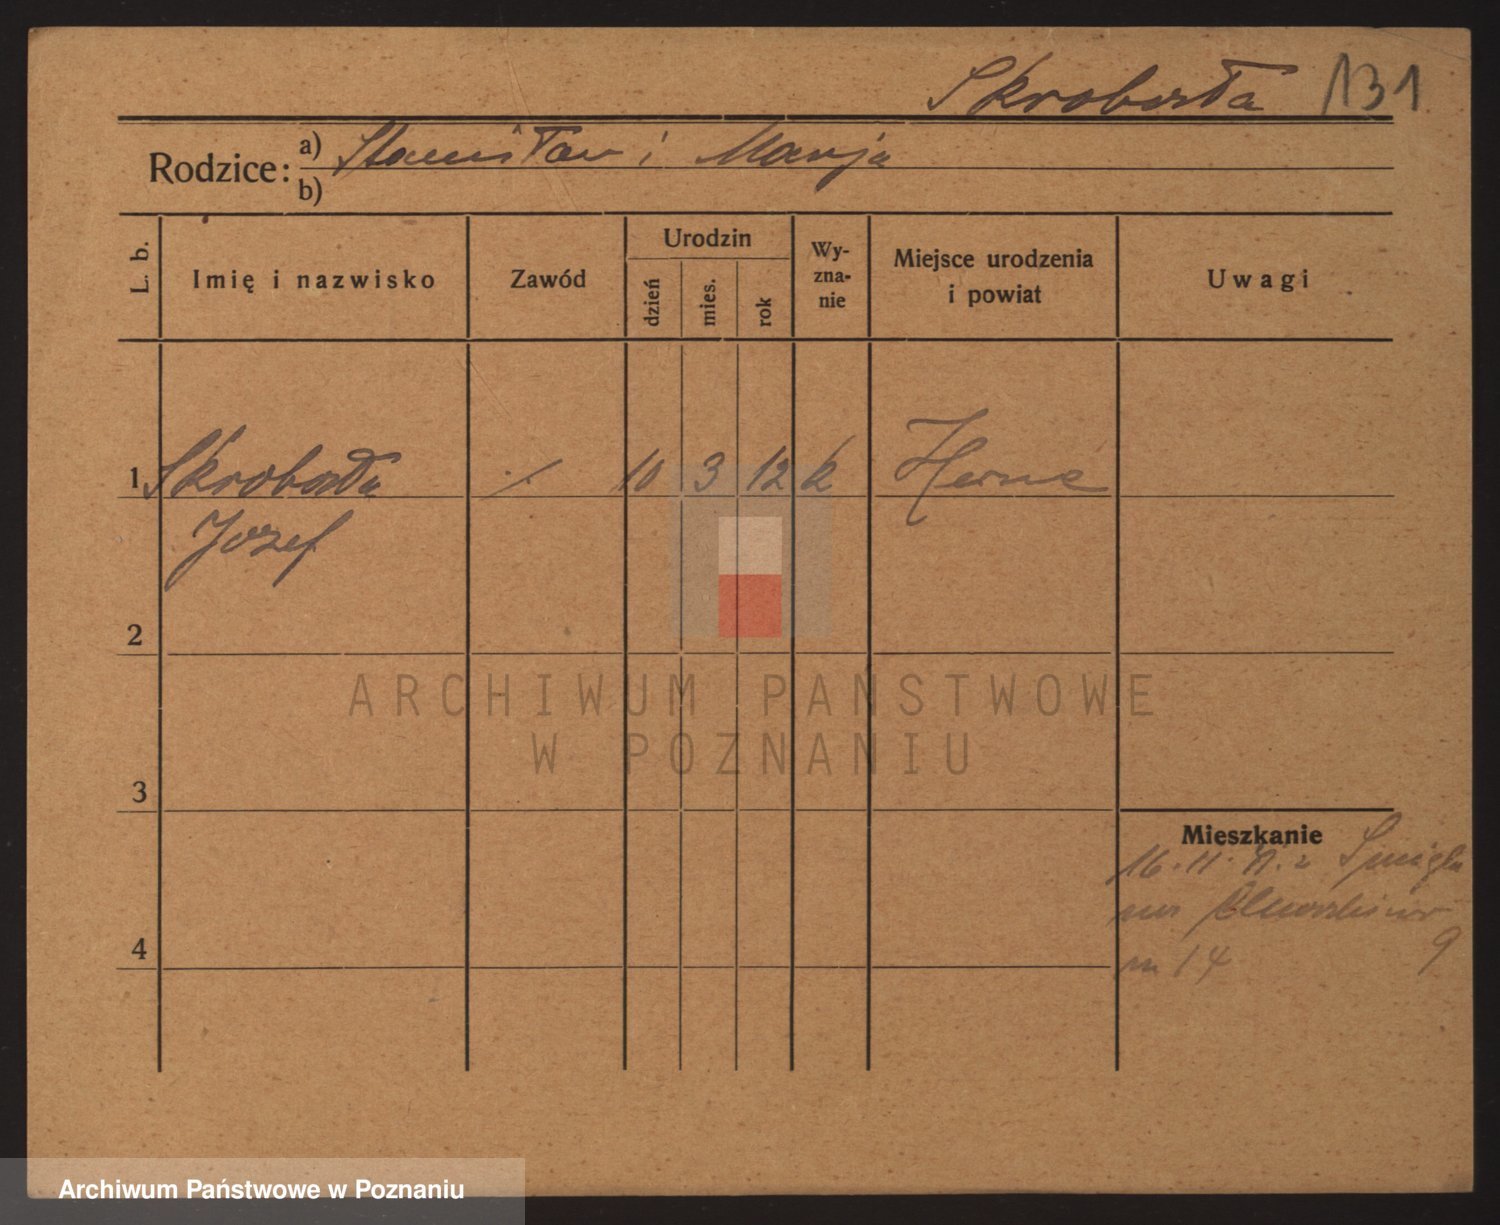 Skrobarła 131
Rodzice: a) Stanisław i Marja
b)
L. b.
Imię i nazwisko
Zawód
Urodzin
dzień
mies.
rok
Wy-
zna-
nie
Miejsce urodzenia
i powiat
Uwagi
1 Skrobarła ./. 10 3 12 k Herne
Józef
2
3
4
Mieszkanie
16. 11. z
9
m 14
ARCHIWUM PAŃSTWOWE
W POZNANIU
Archiwum Państwowe w Poznaniu